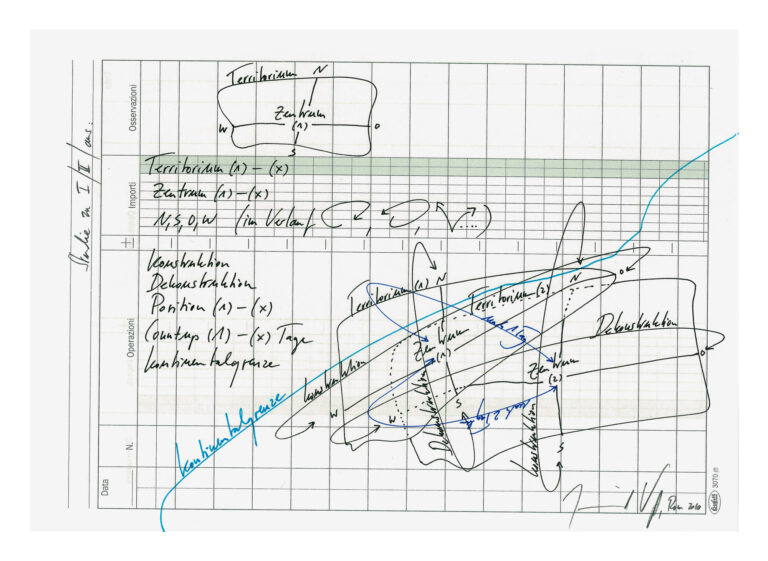 Studie zu I/II/
Osservazioni
Importi
Operazioni
N.
Data
Territorium N
Zentrum
W (1) O
S
Territorium (1) – (x)
Zentrum (1) – (x)
N, S, O, W (im Verlauf , , )
Konstruktion
Dekonstruktion
Position (1) – (x)
Countup (1) – (x) Tage
Kontinentalgrenze
Territorium (1) N
Territorium (2) N O
Dekonstruktion
Zentrum
(1)
Zentrum
(2)
O
Konstruktion
Dekonstruktion
Konstruktion
W
W
S
S
Kontinentalgrenze
Rom 2010
3070